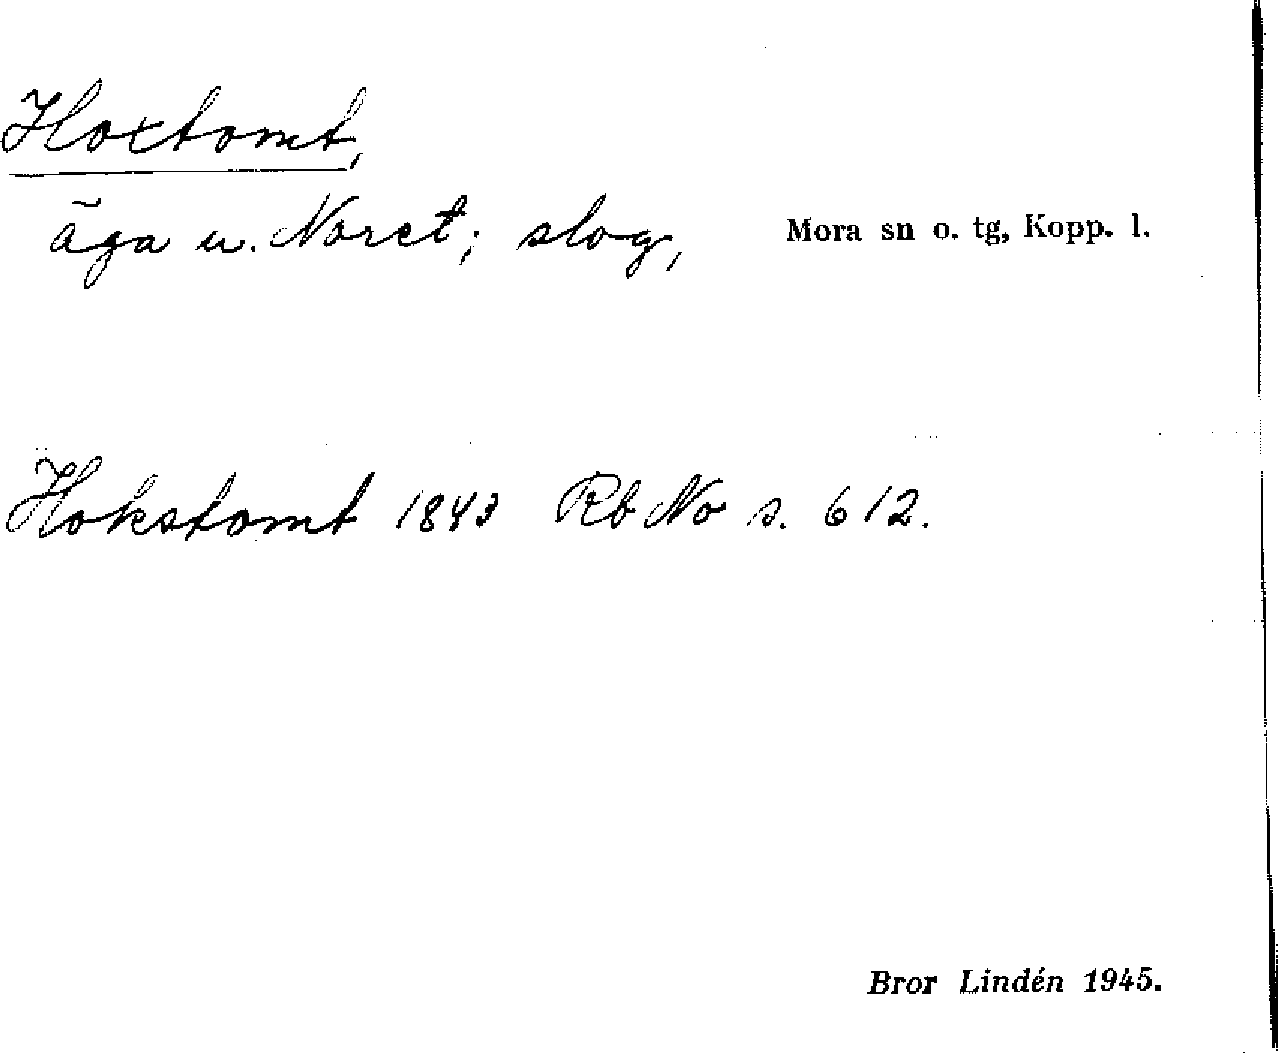 Hoxtomt,
äga u. Noret; slog, Mora sn o. tg, Kopp. l.
Hokstomt 1843 Rb No s. 612.
Bror Lindén 1945.